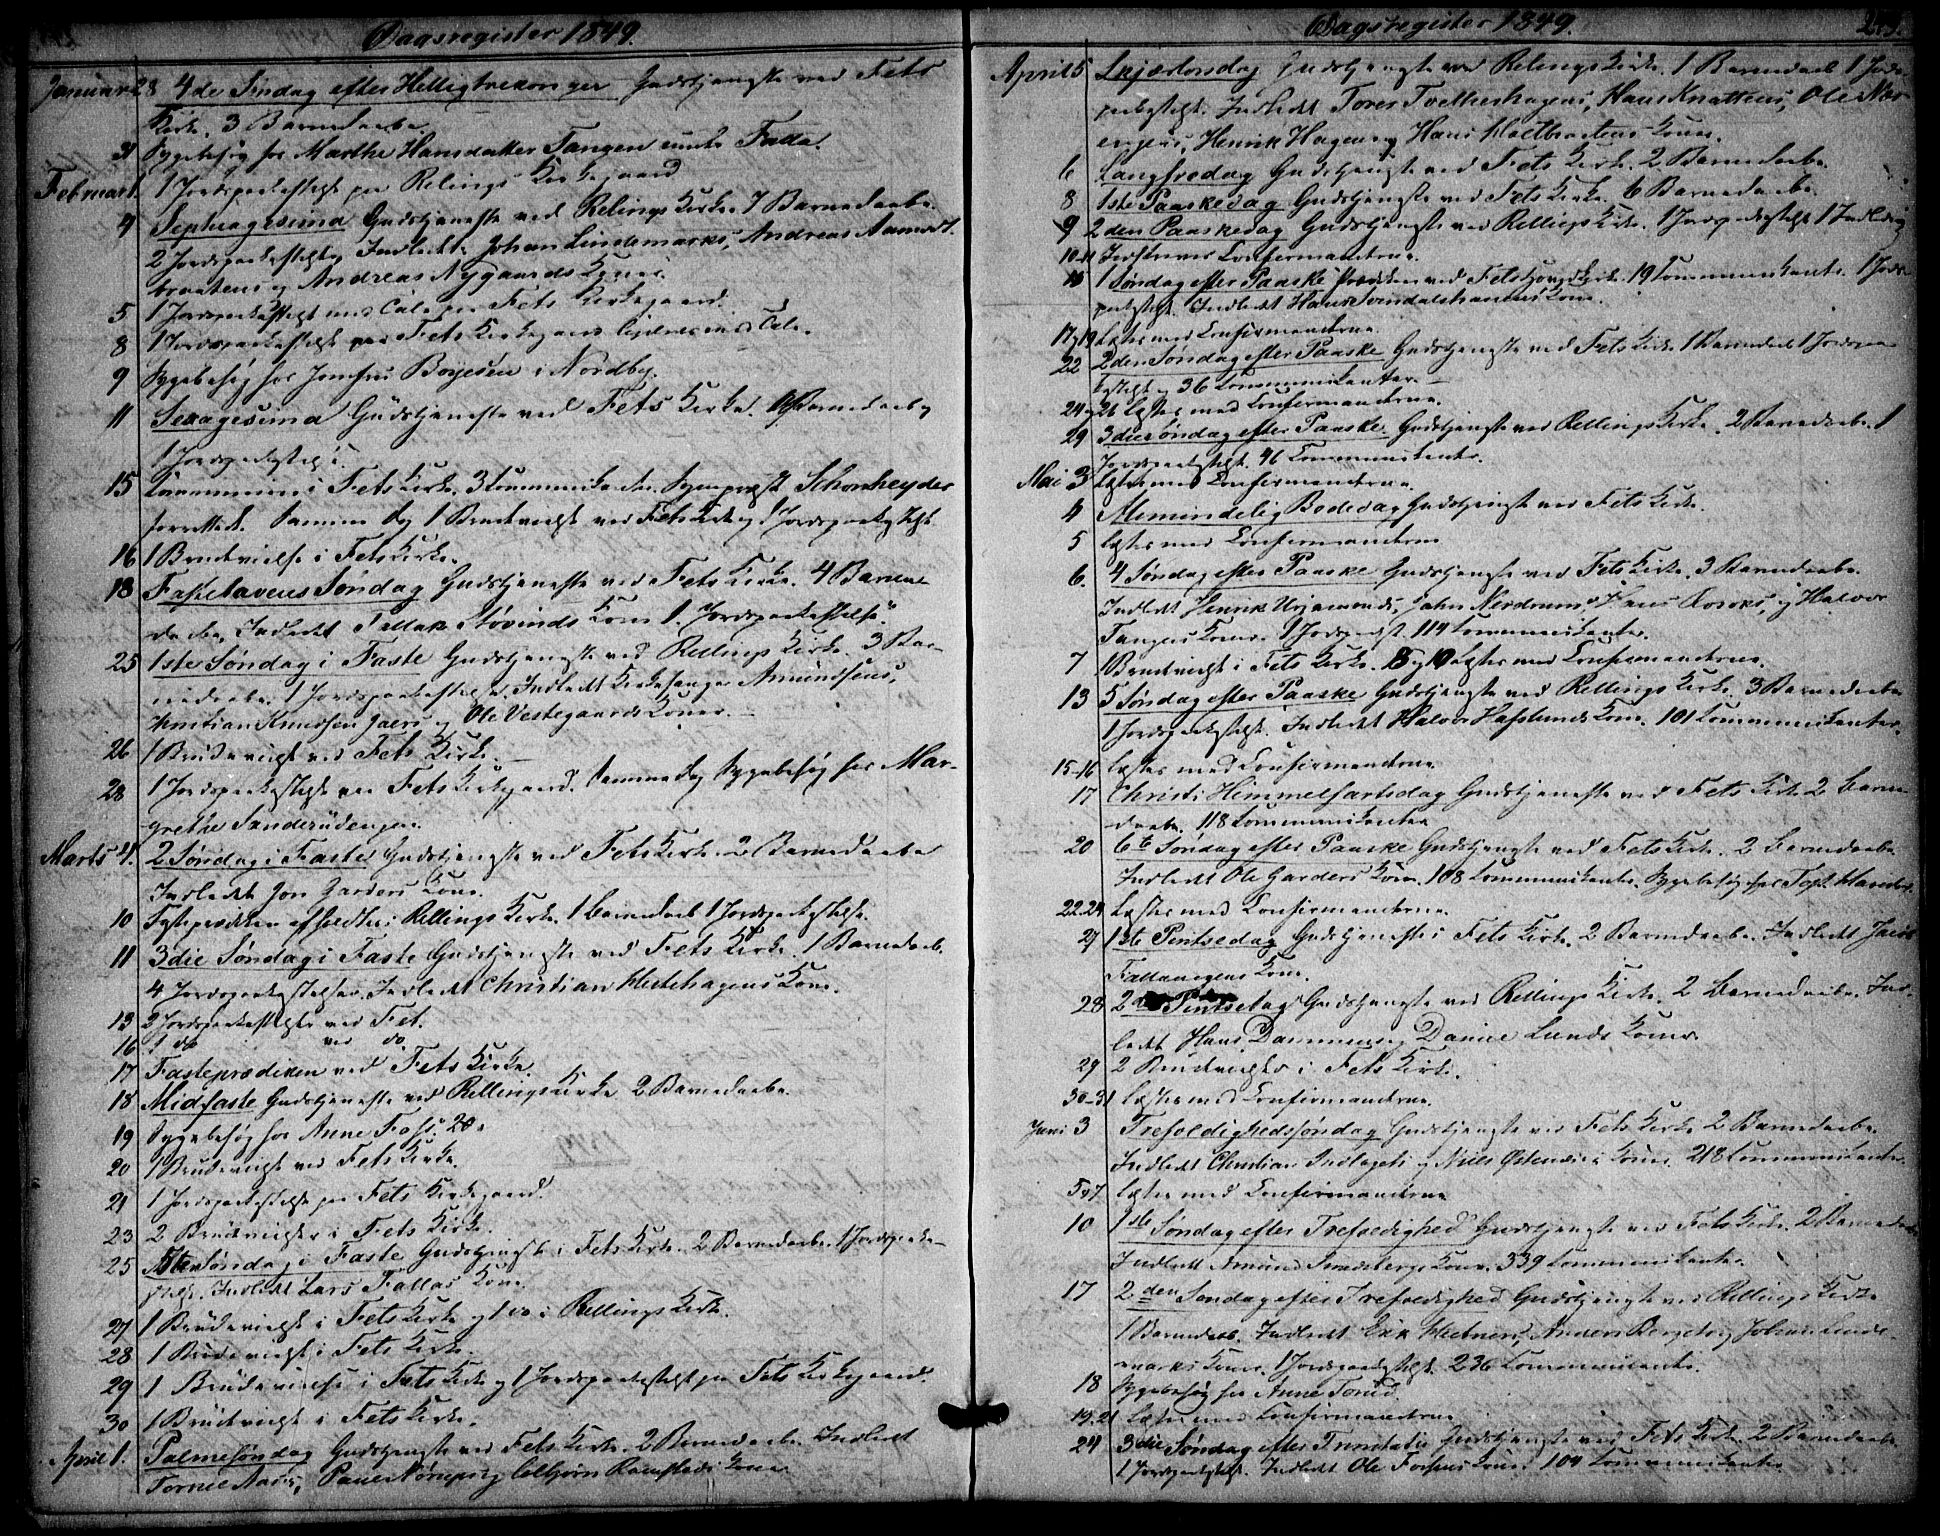 Dagsregister 1849.
Januar 28 4de Søndag efter Helligtrekonger Gudstjeneste ved Fets
Kirke. 3 Barnedaabe.
31 Sygebesøg hos Marthe Hansdatter Tangen under Falla.
Februar 1. 1 Jordspaakastelse paa Relings Kirkegaard
4 Septuagesima Gudstjeneste ved Relings Kirke. 7 Barnedaabe.
2 Jordspaakastelser Indledt: Johan Lindemarks, Andreas Aamodt-
braatens og Andreas Nygaards Koner.
5 1 Jordspaakastelse med Tale paa Fets Kirkegaard.
8 1 Jordspaakastelse paa Fets Kirkegaard ligeledes med Tale.
9 Sygebesøg hos Jomfru Boyesen i Nordby.
11 Sexagesima Gudstjeneste ved Fets Kirke. Barnedaab og
1 Jordspaakastelse.
15 Communion i Fets Kirke. 3 Communikanter. Sogneprest Schonheyder
forrettede. Samme Dag 1 Brudevielse ved Fets Kirke og 1 Jordspaakastelse
16 1 Brudevielse i Fets Kirke.
18 Fastelavens Søndag Gudstjeneste ved Fets Kirke. 4 Barne-
daabe, Indledt Fallak Støvinds Kone 1. Jordspaakastelse.
25 1ste Søndag i Faste Gudstjeneste ved Rellings Kirke. 3 Bar-
nedaabe. 1 Jordspaakastelse. Indledt Kirkesanger Amundsens,
Kristian Knudsen Jaers og Ole Vestegaards Koner.
26 1 Brudevielse ved Fets Kirke.
28 1 Jordspaakastelse paa Fets Kirkegaard. Samme Dag Sygebesøg hos Mar-
grethe Sanderudengen.
Marts 4. 2 Søndag i Faste Gudstjeneste ved Fets Kirke. 2 Barnedaabe
Indledt Jon Garders Kone.
10 Fasteprædiken afholdtes i Rellings Kirke. 1 Barnedaab 1 Jordspaakastelse.
11 3die Søndag i Faste Gudstjeneste ved Fets Kirke. 1 Barnedaab.
4 Jordspaakastelser. Indledt Christian Hvidehagens Kone.
13 2 Jordspaakastelser ved Fet.
16 1 do ved do
17 Fasteprædiken ved Fets Kirke.
18 Midfaste Gudstjeneste ved Rellings Kirke 2 Barnedaabe.
19 Sygebesøg hos Anne
20 1 Brudevielse ved Fets Kirke.
21 1 Jordspaakastelse paa Fets Kirkegaard.
23 2 Brudevielser i Fets Kirke.
25 5te Søndag i Faste Gudstjeneste i Fets Kirke. 2 Barnedaabe. 1 Jordspaaka-
stelse. Indledt Lars Fallas Kone
27 1 Brudevielse i Fets Kirke og 1 do i Rellings Kirke
28 1 Brudevielse i Fets Kirke.
29 1 Brudevielse i Fets Kirke og 1 Jordspaakastelse paa Fets Kirkegaard.
30 1 Brudevielse i Fets Kirke.
April 1. Palmesøndag Gudstjeneste ved Fets Kirke. 2 Barnedaabe. Indledt
og Colbjørn Ramstads Koner
Dagsregister 1849.
April 5 Skjærtorsdag Gudstjeneste ved Relings Kirke. 1 Barnedaab 1 Jords-
paakastelse. Indledt Tores Toetterhagens, Hans Knattens, Ole Nor-
engens, Henrik Hagens og Hans Koner.
6 Langfredag Gudstjeneste ved Fets Kirke. 2 Barnedaabe.
8 1ste Paaskedag Gudstjeneste ved Fets Kirke. 6 Barnedaabe.
9 2den Paaskedag Gudstjeneste ved Rellings Kirke. 1 Jordspaakastelse 1 Indledn.
10-11 Indskreves Confirmanderne.
15 1 Søndag efter Paaske Prædiken ved Fets Kirke. 19 Communikanter. 1 Jords-
paakastelse. Indledt Hans Svendalshammers Kone.
17 og 19 Læstes med Confirmanderne
22 2den Søndag efter Paaske Gudstjeneste ved Fets Kirke 1 Barnedaab 1 Jordspaa-
kastelse og 36 Communikanter.
24 og 26 læstes med Confirmanderne.
29 3die Søndag efter Paaske. Gudstjeneste ved Rellings Kirke. 2 Barnedaabe. 1
Jordspaakastelse. 46 Communikanter.
Mai 3 Læstes med Confirmanderne.
4 Alemindelig Bededag Gudstjeneste ved Fets Kirke.
5 læstes med Confirmanderne
6. 4 Søndag efter Paaske Gudstjeneste ved Fets Kirke. 3 Barnedaabe.
Indledt Henrik , John Nerdrums, Hans og Halvor
Tangens Koner. 1 Jordspaakast. 114 Communikanter.
7 1 Brudevielse i Fets Kirke. 8 og 10 Læstes med Confirmanderne.
13 5 Søndag efter Paaske Gudstjeneste ved Rellings Kirke. 3 Barnedaabe
1 Jordspaakastelse. Indledt Halvor Hafslunds Kone. 101 Communikanter.
15-16 læstes med Confirmanderne
17 Christi Himmelfartsdag Gudstjeneste ved Fets Kirke 2 Barne-
daabe. 118 Communikanter
20 6te Søndag efter Paaske Gudstjeneste ved Fets Kirke. 2 Barnedaabe.
Indledt Ole Garders Kone. 108 Communikanter. Sygebesøg hos
22-24 Læstes med Confirmanderne.
27 1ste Pintsedag Gudstjeneste i Fets Kirke. 2 Barnedaabe. Indledt Jacob
Fallavegens Kone.
28 2den Pintsedag Gudstjeneste ved Rellings Kirke. 2 Barnedaabe. Ind-
ledt Hans Dammens og Daniel Lunds Koner.
29 2 Brudevielser i Fets Kirke.
30-31 læstes med Confirmanderne.
Juni 3 Trefoldighedssøndag Gudstjeneste ved Fets Kirke 2 Barnedaabe.
Indledt Christian og Niels Koner. 218 Communikanter.
5 og 7 læstes med Confirmanderne
10 1ste Søndag efter Trefoldighed Gudstjeneste ved Fets Kirke. 2 Barnedaabe
Indledt Amund Kone. 339 Communikanter.
17 2den Søndag efter Trefoldighed Gudstjeneste ved Rellings Kirke
1 Barnedaab. Indledt Erik , Anders Berget og Johan Linde-
marks Koner. 1 Jordspaakastelse. 236 Communikanter.
18 Sygebesøg hos Anne Torud.
19.21 Læstes med Confirmanderne
24 3die Søndag efter Trinitatis Gudstjeneste ved Fets Kirke 2 Barnedaabe
1 Jordspaakastelse. Indledt Ole Kone. 104 Communikanter